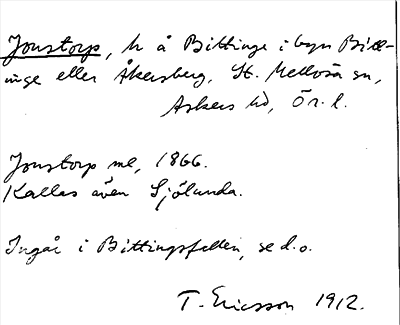 Jonstorp, h å Bittinge i byn Bitt-
inge eller Åkersberg, St. Mellösa sn,
Askers hd, Ör. l.
Jonstorp ml, 1866.
Kallas även Sjölunda.
Ingår i Bittingefallen, se d.o.
T. Ericsson 1912.